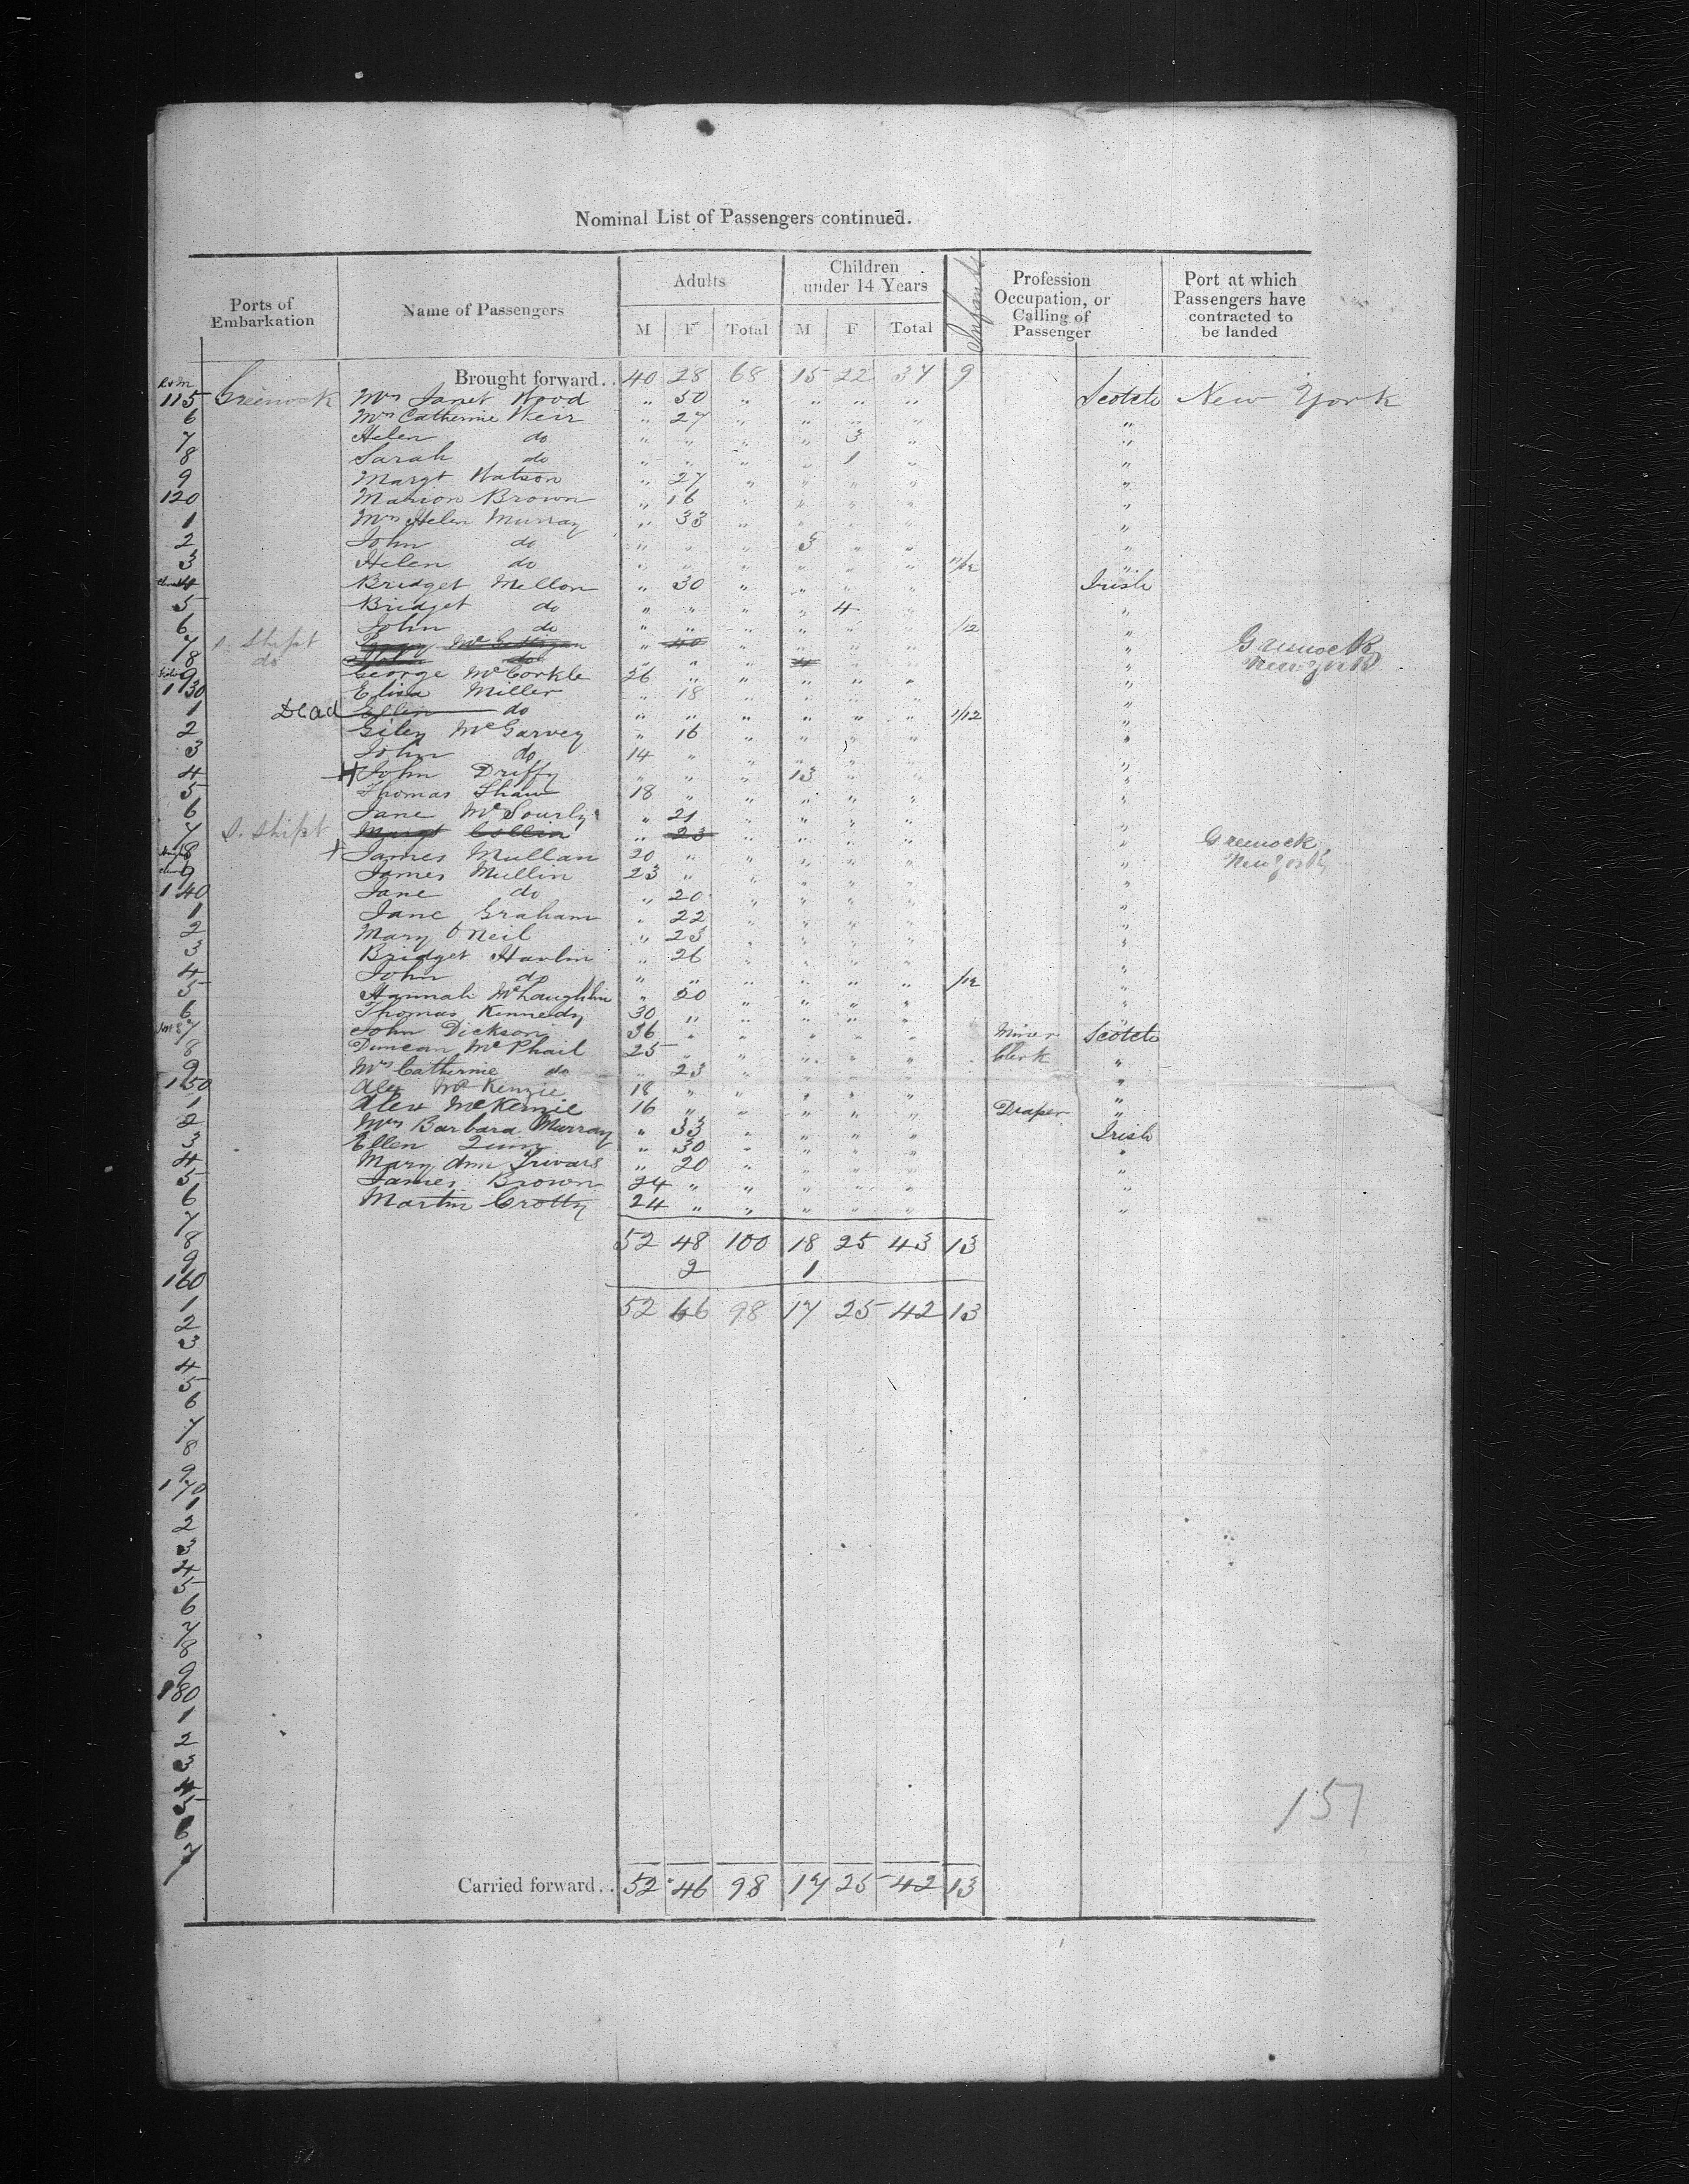 Nominal List of Passengers continued.
Ports of Embarkation Name of Passengers Adults Children under 14 Years Infants Profession Occupation, or Calling of Passenger Port at which Passengers have contracted to be landed
M F Total M F Total
Brought forward.. 40 28 68 15 22 37 9
115 Greenock Mrs Janet Wood „ 50 „ „ „ „ Scotch New York
6 Mrs Catherine Weir „ 27 „ „ „ „ „
7 Helen do „ „ „ „ 3 „ „
8 Sarah do „ „ „ „ 1 „ „
9 Margt Watson „ 27 „ „ „ „ „
120 Marion Brown „ 16 „ „ „ „ „
1 Mrs Helen Murray „ 33 „ „ „ „ „
2 John do „ „ „ 3 „ „ „
3 Helen do „ „ „ „ „ „ 11/12 „
4 Bridget Mellon „ 30 „ „ „ „ Irish
5 Bridget do „ „ „ „ 4 „ „
6 John do „ „ „ „ „ „ 1/12 „
7 S. Shipt „ 40 „ „ „ „ „ Greenock
8 do John do „ „ „ 4 „ „ „ New York
9 George McCorkle 26 „ „ „ „ „ „
130 Eliza Miller „ 18 „ „ „ „ „
1 Dead Ellen do „ „ „ „ „ „ 1/12 „
2 Giley McGarvey „ 16 „ „ „ „ „
3 John do 14 „ „ „ „ „ „
4 John Driffy „ „ „ 13 „ „ „
5 Thomas Shaw 18 „ „ „ „ „ „
6 Jane McSourly „ 21 „ „ „ „ „
7 S. Shipt Margt Collin „ 23 „ „ „ „ „ Greenock
8 James Mullan 20 „ „ „ „ „ „ New York
9 James Mullin 23 „ „ „ „ „ „
140 Jane do „ 20 „ „ „ „ „
1 Jane Graham „ 22 „ „ „ „ „
2 Mary O'Neil „ 23 „ „ „ „ „
3 Bridget Havlin „ 26 „ „ „ „ „
4 John do „ „ „ „ „ „ 1/12 „
5 Hannah McLaughlin „ 20 „ „ „ „ „
6 Thomas Kennedy 30 „ „ „ „ „ „
7 John Dickson 36 „ „ „ „ „ Miner Scotch
8 Duncan McPhail 25 „ „ „ „ „ Clerk „
9 Mrs Catherine do „ 23 „ „ „ „ „
150 Alex McKenzie 18 „ „ „ „ „ „
1 Alex McKenzie 16 „ „ „ „ „ Draper „
2 Mrs Barbara Murray „ 33 „ „ „ „ Irish
3 Ellen Quinn „ 30 „ „ „ „ „
4 Mary Ann Trivars „ 20 „ „ „ „ „
5 James Brown 24 „ „ „ „ „ „
6 Martin Crotty 24 „ „ „ „ „ „
7
8 52 48 100 18 25 43 13
9 2 1
160
1 52 46 98 17 25 42 13
2
3
4
5
6
7
8
9
170
1
2
3
4
5
6
7
8
9
180
1
2
3
4
5
6
7
157
Carried forward.. 52 46 98 17 25 42 13